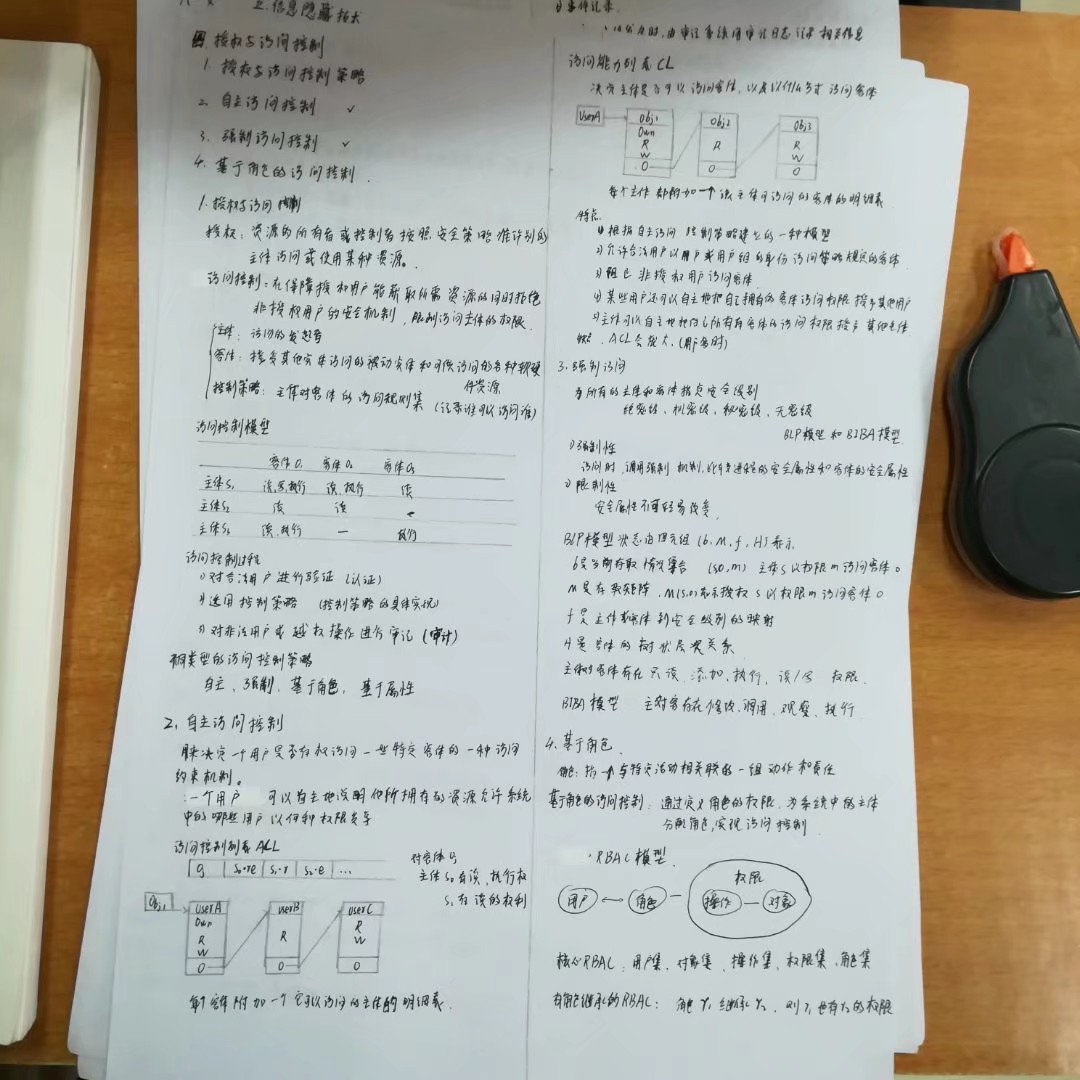 五.信息隐藏技术
四.授权与访问控制
1.授权与访问控制策略
2.自主访问控制 ✓
3.强制访问控制 ✓
4.基于角色的访问控制.
1.授权与访问控制
授权:资源的所有者或控制者按照安全策略准许别的
主体访问或使用某种资源。
访问控制:在保障授权用户能获取所需资源的同时拒绝
非授权用户的安全机制,限制访问主体的权限.
主体:访问的发起者
客体:接受其他实体访问的被动实体和可供访问的各种软硬
件资源
控制策略:主体对客体的访问规则集(记录谁可以访问谁)
访问控制模型
客体O₁ 客体O₂ 客体O₃
主体S₁ 读,写,执行 读、执行 读
主体S₂ 读 读 —
主体S₃ 读、执行 — 执行
访问控制过程
1)对合法用户进行验证(认证)
2)选用控制策略 (控制策略的具体实现)
3)对非法用户或越权操作进行审计(审计)
类型的访问控制策略
自主、强制、基于角色,基于属性
2.自主访问控制
用来决定一个用户是否有权访问一些特定客体的一种访问
约束机制。
一个用户 可以自主地说明他所拥有的资源允许系统
中的哪些用户以何种权限共享
访问控制列表ACL
Oj S₀·re S₁·r S₂·e ...
对客体Oj
主体S₀有读、执行权
S₁有读的权利
Obj1
userA userB userC
Own R R
R W
W
0 0 0
每个客体附加一个它可以访问的主体的明细表.
3)事件记录.
时,由审计系统用审计日志记录相关信息
访问能力列表CL
决定主体是否可以访问客体,以及以什么方式访问客体
UserA
Obj1 Obj2 Obj3
Own R R
R W
W
0 0 0
每个主体都附加一个该主体可访问的客体的明细表
特点.
1)根据自主访问控制策略建立的一种模型
2)允许合法用户以用户或用户组的身份访问策略规定的客体
3)阻止非授权用户访问客体.
4)某些用户还可以自主地把自己拥有的客体访问权限授予其他用户
5)主体可以自主地把自己所有客体的访问权限授予其他主体
缺点.ACL会很大.(用户多时)
3.强制访问
为所有的主体和客体指定安全级别
绝密级、机密级、秘密级、无密级
BLP模型和BIBA模型.
1)强制性
访问时,调用强制机制,比较进程的安全属性和客体的安全属性
2)限制性
安全属性不可轻易改变.
BLP模型状态由四元组(b.M.f.H)表示.
b是当前存取情况集合 (s,o,m) 主体s以权限m访问客体o
M是存取矩阵,M(s,o)表示授权s以权限m访问客体o
f是主体或客体到安全级别的映射
H是客体的树状层次关系.
主体对客体有在只读、添加、执行、读/写 权限.
BIBA模型 主对客存在修改、调用、观察、执行.
4.基于角色.
角色:指一个与特定活动相关联的一组动作和责任
基于角色的访问控制:通过定义角色的权限,为系统中的主体
分配角色,实现访问控制.
RBAC模型.
权限
用户 角色 操作 对象
核心RBAC:用户集、对象集、操作集、权限集、角色集
有角色继承的RBAC:角色r₁继承r₂,则r₁也有r₂的权限